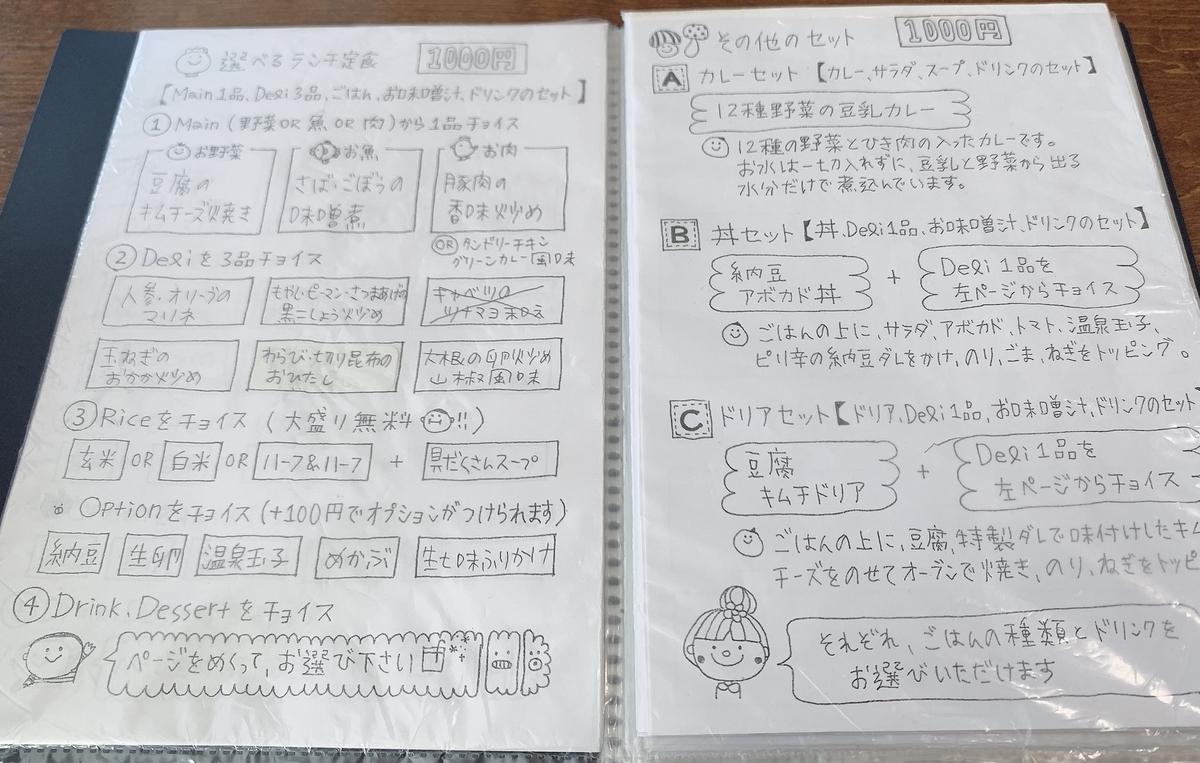 選べるランチ定食 1000円
【Main1品、Deli3品、ごはん、お味噌汁、ドリンクのセット】
① Main (野菜OR 魚 OR 肉)から1品チョイス
お野菜
豆腐の
キムチーズ焼き
お魚
さば・ごぼうの
味噌煮
お肉
豚肉の
香味炒め
OR タンドリーチキン
グリーンカレー風味
② Deliを3品チョイス
人参・オリーブの
マリネ
もやし・ピーマン・さつまあげの
黒こしょう炒め
キャベツの
ツナマヨ和え
玉ねぎの
おかか炒め
わらび・切り昆布の
おひたし
大根の卵炒め
山椒風味
③ Riceをチョイス (大盛り無料!!)
玄米 OR 白米 OR ハーフ&ハーフ + 具だくさんスープ
Optionをチョイス(+100円でオプションがつけられます)
納豆 生卵 温泉玉子 めかぶ 生七味ふりかけ
④ Drink、Dessertをチョイス
ページをめくって、お選び下さい
その他のセット 1000円
A カレーセット【カレー、サラダ、スープ、ドリンクのセット】
12種野菜の豆乳カレー
12種の野菜とひき肉の入ったカレーです。
お水は一切入れずに、豆乳と野菜から出る
水分だけで煮込んでいます。
B 丼セット【丼、Deli1品、お味噌汁、ドリンクのセット】
納豆
アボカド丼
+
Deli 1品を
左ページからチョイス
ごはんの上に、サラダ、アボカド、トマト、温泉玉子、
ピリ辛の納豆ダレをかけ、のり、ごま、ねぎをトッピング。
C ドリアセット【ドリア、Deli1品、お味噌汁、ドリンクのセット
豆腐
キムチドリア
+
Deli 1品を
左ページからチョイス
ごはんの上に、豆腐、特製ダレで味付けしたキム
チーズをのせてオーブンで焼き、のり、ねぎをトッピ
それぞれ、ごはんの種類とドリンクを
お選びいただけます